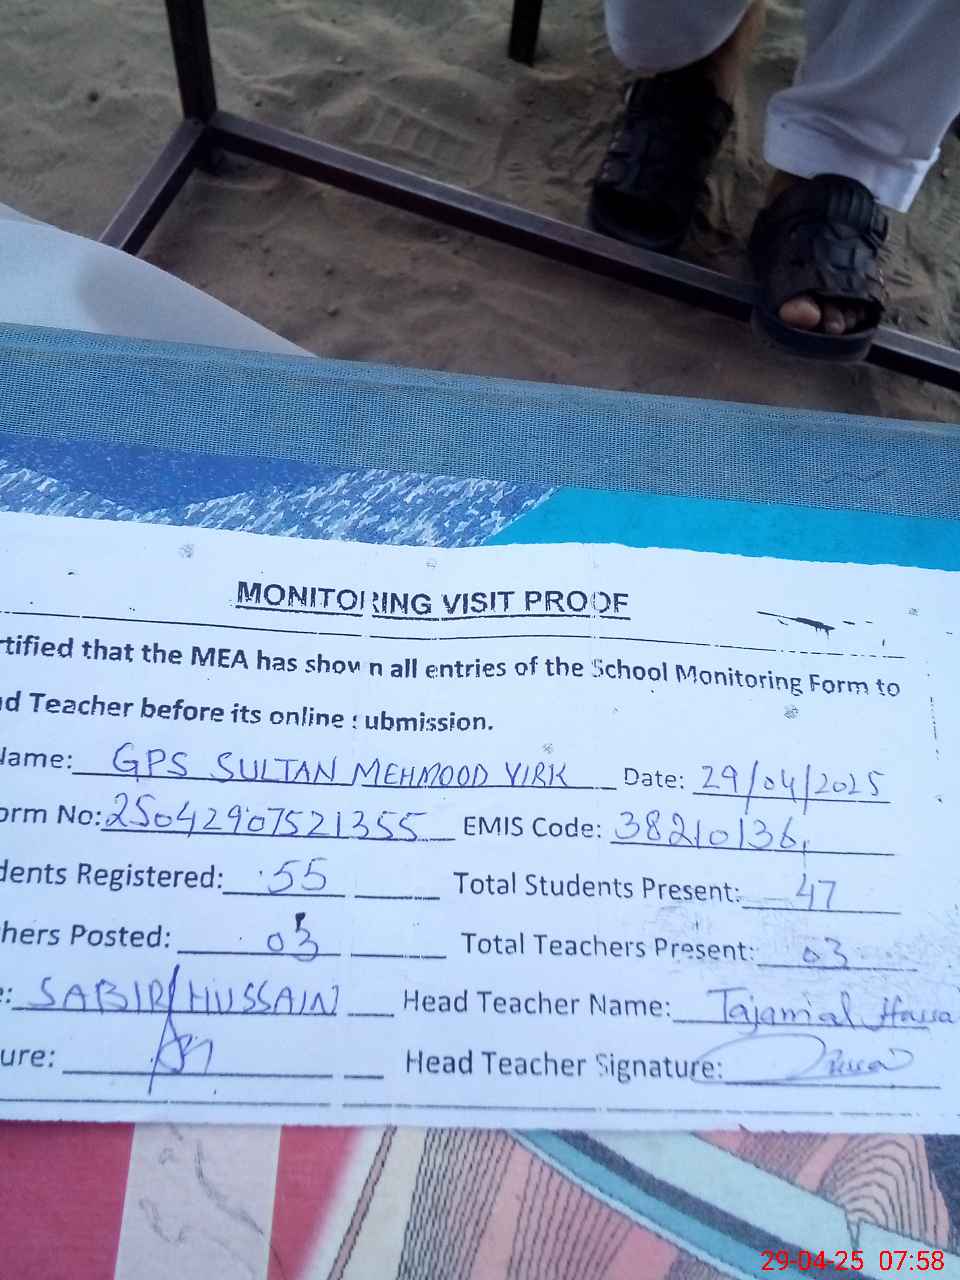 MONITORING VISIT PROOF
rtified that the MEA has shown all entries of the School Monitoring Form to
d Teacher before its online submission.
Name: GPS SULTAN MEHMOOD VIRK Date: 29/04/2025
orm No: 25042907521355 EMIS Code: 38210136
dents Registered: 55 Total Students Present: 47
hers Posted: 03 Total Teachers Present: 03
e: SABIR HUSSAIN Head Teacher Name: Tajamial
ure: Head Teacher Signature:
29-04-25 07:58